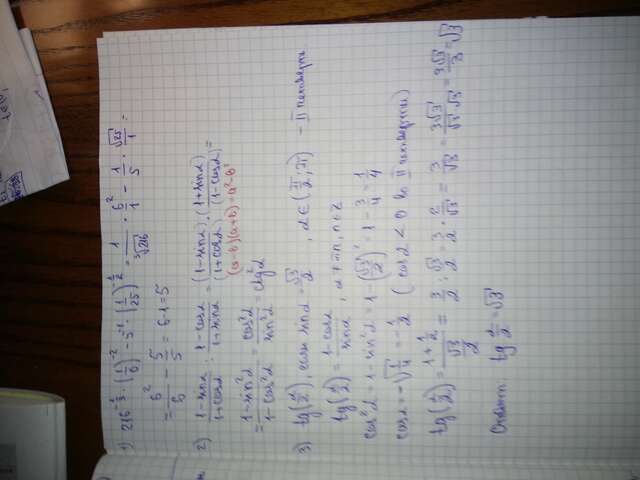 1) 216^(-1/3) · (1/6)^(-2) - 5^(-1) · (1/25)^(-1/2) = 1/∛216 · 6²/1 - 1/5 · √25/1 =
= 6²/6 - 5/5 = 6-1=5
2) (1-sinα)/(1+cosα) : (1-cosα)/(1+sinα) = ((1-sinα)·(1+sinα))/((1+cosα)(1-cosα)) =
(a-b)(a+b)=a²-b²
= (1-sin²α)/(1-cos²α) = cos²α/sin²α = ctg²α
3) tg(α/2), если sinα = √3/2, α∈(π/2;π) - II четверть
tg(α/2) = (1-cosα)/sinα, α≠πn, n∈z
cos²α = 1-sin²α = 1-(√3/2)² = 1-3/4 = 1/4
cosα = -√(1/4) = -1/2 (cosα<0 во II четверти)
tg(α/2) = (1+1/2)/(√3/2) = 3/2 : √3/2 = 3/2 · 2/√3 = 3/√3 = 3√3/(√3·√3) = 3√3/3 = √3
Ответ: tg α/2 = √3